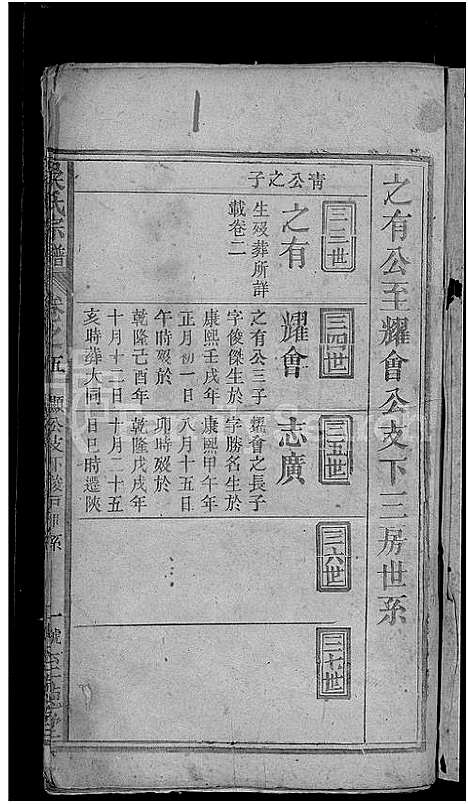 之有公至耀會公支下三房世系
三三世
三四世
三五世
三六世
三七世
青公之子
之有
生殁葬所詳
載卷二
耀會
之有公三子
字俊傑生於
康熙壬戌年
正月初一日
午時殁於
乾隆己酉年
十月十二日
亥時葬大同
志廣
耀會之長子
字勝名生於
康熙甲午年
八月十五日
卯時殁於
乾隆戊戌年
十月二十五
日巳時遷陝
吳氏宗譜
卷之五
顯公支下
一號